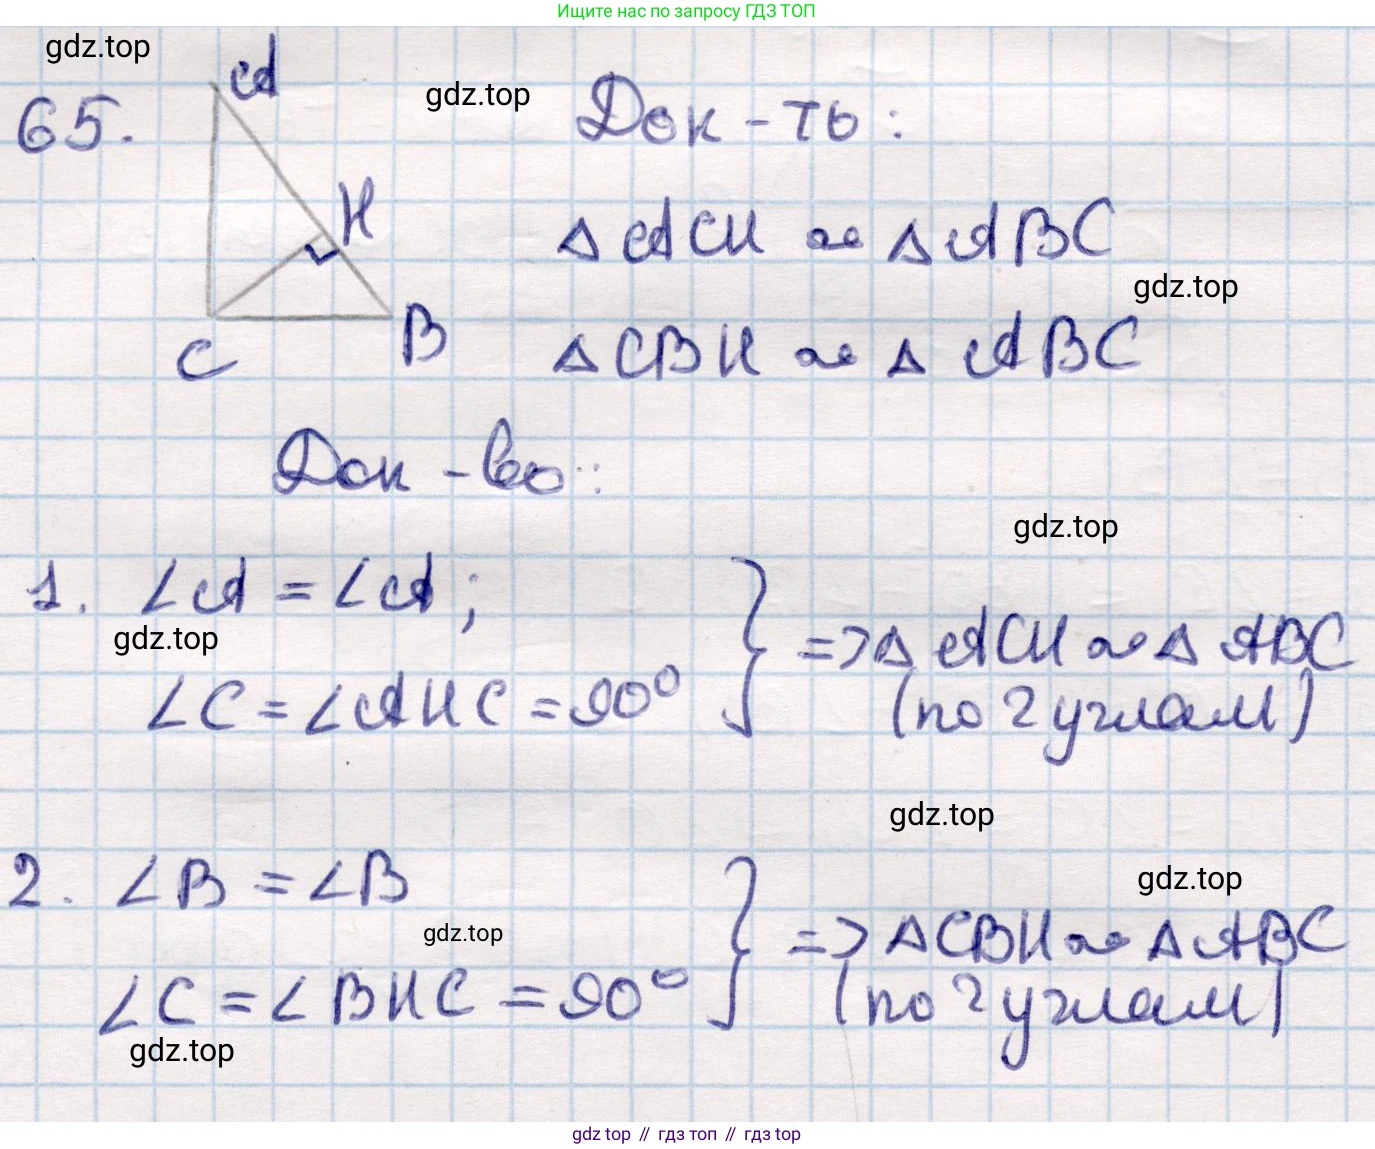 Ищите нас по запросу ГДЗ ТОП
gdz.top
65.
A
gdz.top
Док-ть:
H
△ACH ∾ △ABC
gdz.top
C
B
△CBH ∾ △ABC
Док-во:
gdz.top
1. ∠A = ∠A;
gdz.top
∠C = ∠AHC = 90°
=> △ACH ∾ △ABC
(по 2 углам)
gdz.top
2. ∠B = ∠B
gdz.top
gdz.top
∠C = ∠BHC = 90°
=> △CBH ∾ △ABC
(по 2 углам)
gdz.top
gdz top // гдз топ // гдз top